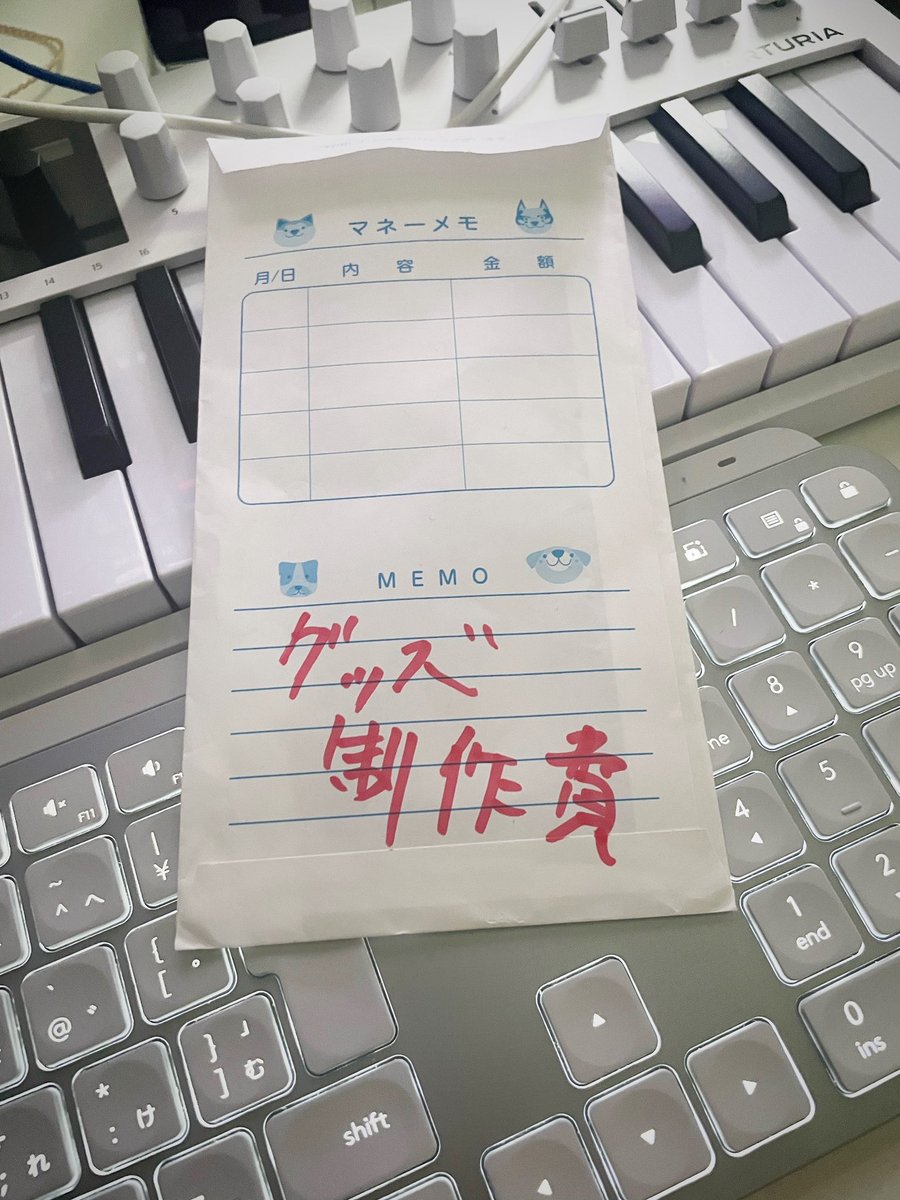 RTURIA
5
13 14 15 16
マネーメモ
月/日 内容 金額
MEMO
グッズ
制作費
F11
/
*
−
8
9 pg up
me
4
5
1 end
2
0 ins
~ ^ へ
| ¥
` @ ゛
{ [ ゜
* : け
} ] 」 む
れ
shift